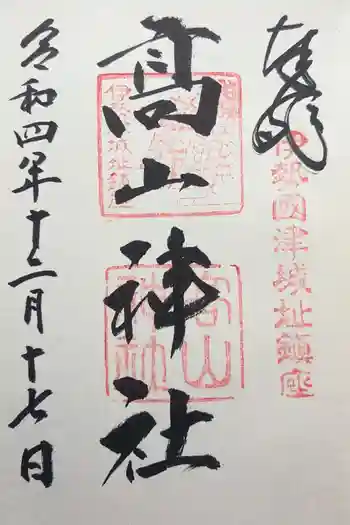 奉拝
伊勢國津城址鎮座
高山神社
高山神社
令和四年十二月十七日